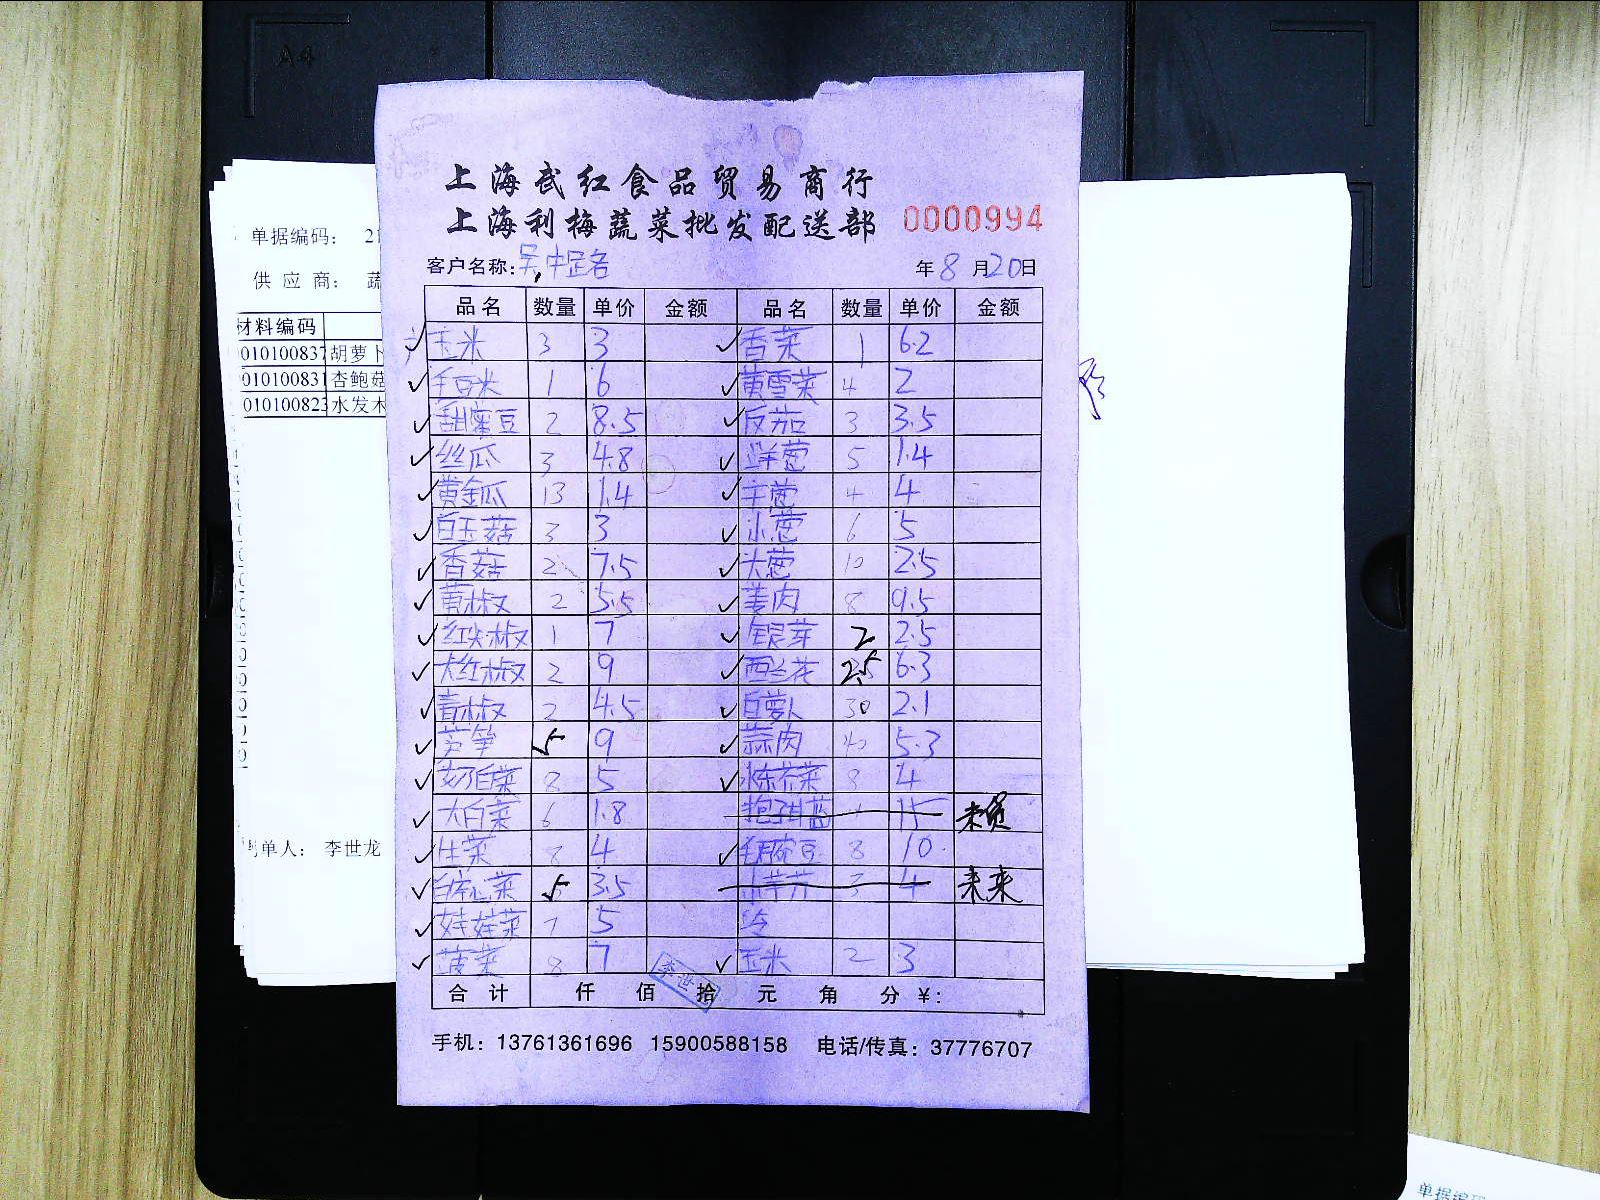 A4
上海武红食品贸易商行
上海利梅蔬菜批发配送部 0000994
客户名称: 吴中路 年 8 月 20 日
品名 数量 单价 金额 品名 数量 单价 金额
玉米 3 3 香菜 1 6.2
1 6 黄雪菜 4 2
甜蜜豆 2 8.5 反茄 3 3.5
丝瓜 3 4.8 洋葱 5 1.4
黄金瓜 13 1.4 4 4
白玉菇 3 3 小葱 6 5
香菇 2 7.5 大葱 10 2.5
黄椒 2 5.5 姜肉 8 9.5
红尖椒 1 7 银芽 2 2.5
大红椒 2 9 西兰花 2.5 6.3
青椒 2 4.5 白萝卜 30 2.1
芦笋 5 9 蒜肉 40 5.3
奶白菜 8 5 8 4
大白菜 6 1.8 15 未货
生菜 8 4 毛豌豆 8 10
5 3.5 3 4 未来
娃娃菜 7 5
菠菜 8 7 玉米 2 3
李世
合计 仟 佰 拾 元 角 分 ¥:
手机: 13761361696 15900588158 电话/传真: 37776707
单据编码: 21
供应商: 蔬
材料编码
010100837 胡萝卜
010100831 杏鲍菇
010100823 水发木
单人: 李世龙
单据编码